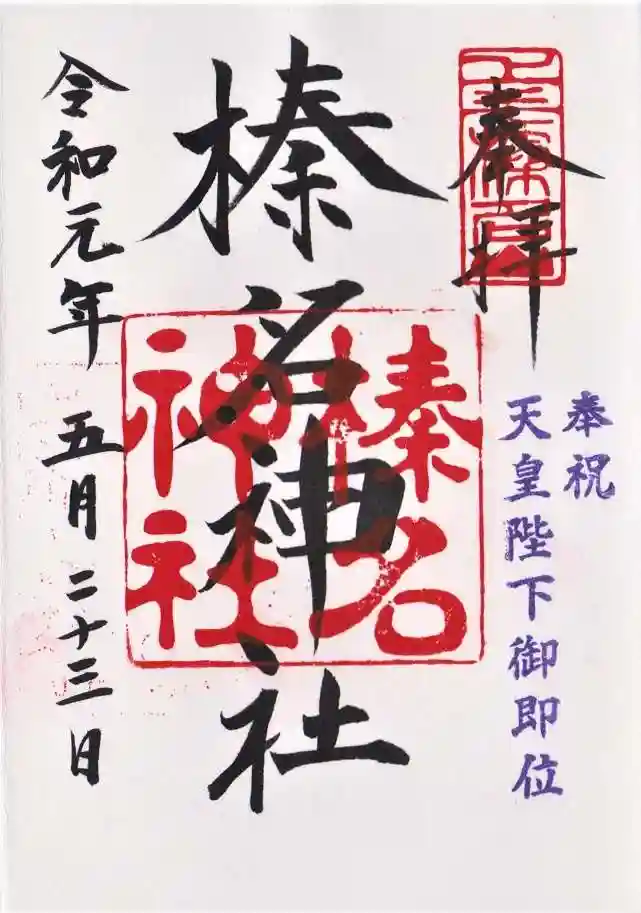 奉拝
奉祝
天皇陛下御即位
榛名神社
榛名
神社
令和元年 五月二十三日